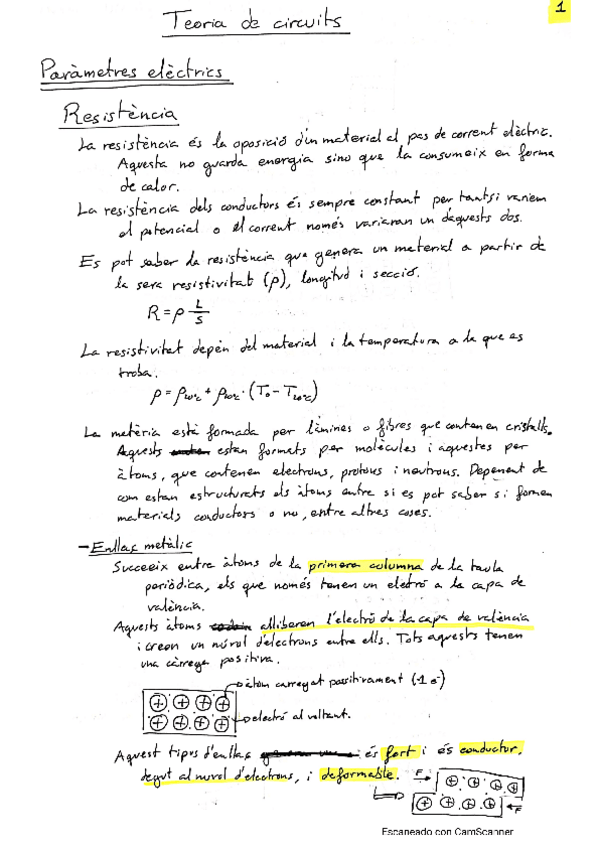 1
Teoria de circuits
Paràmetres elèctrics
Resistència
La resistència és la oposició d'un material al pas de corrent elèctric.
Aquesta no guarda energia sino que la consumeix en forma
de calor.
La resistència dels conductors és sempre constant per tant si variem
el potencial o el corrent només variaran un d'aquests dos.
Es pot saber la resistència que genera un material a partir de
la seva resistivitat (ρ), longitud i secció.
R = ρ L/S
La resistivitat depèn del material i la temperatura a la que es
troba.
ρ = ρ20ºC + ρ20ºC · (T0 - T20ºC)
La matèria està formada per làmines o fibres que contenen cristalls.
Aquests estan formats per molècules i aquestes per
àtoms, que contenen electrons, protons i neutrons. Depenent de
com estan estructurats els àtoms entre si es pot saber si formen
materials conductors o no, entre altres coses.
- Enllaç metàlic
Succeeix entre àtoms de la primera columna de la taula
periòdica, els que només tenen un eletró a la capa de
valència.
Aquests àtoms alliberen l'electró de la capa de valència
i creen un núvol d'electrons entre ells. Tots aquests tenen
una càrrega positiva.
àtom carregat positivament (-1 e)
electró al voltant.
Aquest tipus d'enllaç és fort i és conductor,
degut al núvol d'electrons, i deformable.
F
F
Escaneado con CamScanner